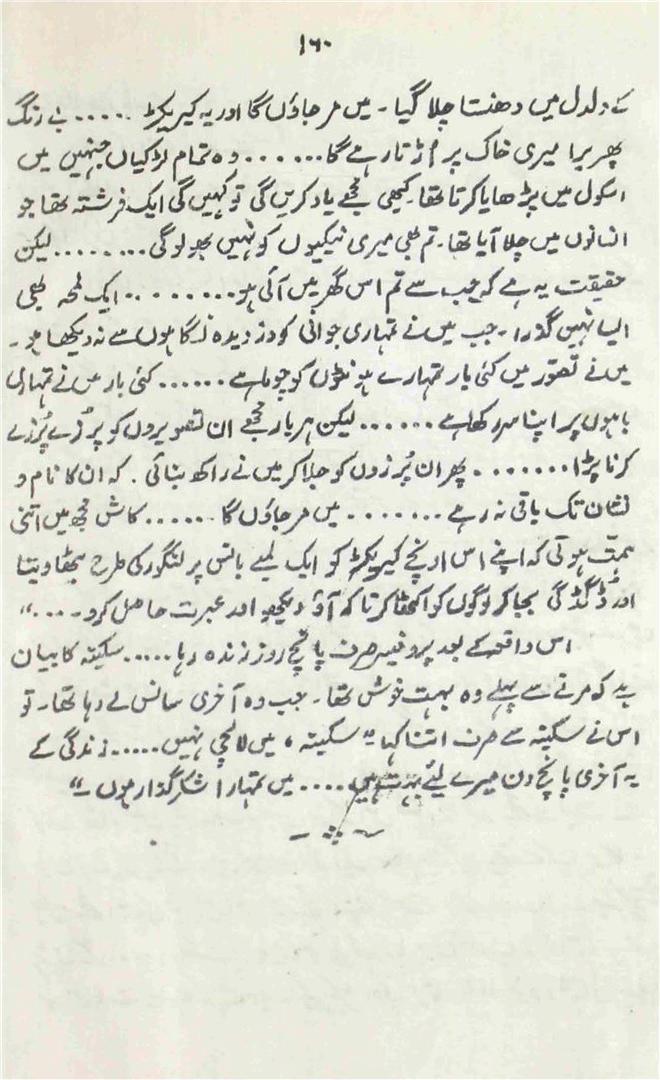 ۱۶۰
کے دلدل میں دھنستا چلا گیا ۔ میں مر جاؤں گا اور یہ کیریکٹر ..... بے رنگ
پھریرا میری خاک پر اُڑتا رہے گا ...... وہ تمام لڑکیاں جنہیں میں
اسکول میں پڑھایا کرتا تھا۔ کبھی مجھے یاد کریں گی تو کہیں گی ایک فرشتہ تھا جو
انسانوں میں چلا آیا تھا۔ تم بھی میری نیکیوں کو نہیں بھولوگی ........ لیکن
حقیقت یہ ہے کہ جب سے تم اس گھر میں آئی ہو ........ ایک لمحہ بھی
ایسا نہیں گذرا ۔ جب میں نے تمہاری جوانی کو دزدیدہ نگاہوں سے نہ دیکھا ہو ۔
میں نے تصوّر میں کئی بار تمہارے ہونٹوں کو چوما ہے ...... کئی بار میں نے تمہاری
باہوں پر اپنا سر رکھا ہے ...... لیکن ہر بار مجھے ان تصویروں کو پُرزے پُرزے
کرنا پڑا ....... پھر ان پُرزوں کو جلا کر میں نے راکھ بنائی . کہ ان کا نام و
نشان تک باقی نہ رہے ........ میں مر جاؤں گا ...... کاش مجھ میں اتنی
ہمت ہوتی کہ اپنے اس اونچے کیریکٹر کو ایک لمبے بانس پر لنگور کی طرح بٹھا دیتا
اور ڈُگڈگی بجا کر لوگوں کو اکٹھا کرتا کہ آؤ دیکھو اور عبرت حاصل کرو ....“
اس واقعہ کے بعد پروفیسر صرف پانچ روز زندہ رہا ..... سکینہ کا بیان
ہے کہ مرنے سے پہلے وہ بہت خوش تھا ۔ جب وہ آخری سانس لے رہا تھا ۔ تو
اس نے سکینہ سے صرف اتنا کہا ” سکینہ ، میں لالچی نہیں ..... زندگی کے
یہ آخری پانچ دن میرے لئے بہت ہیں .... میں تمہارا شکر گذار ہوں ۔“